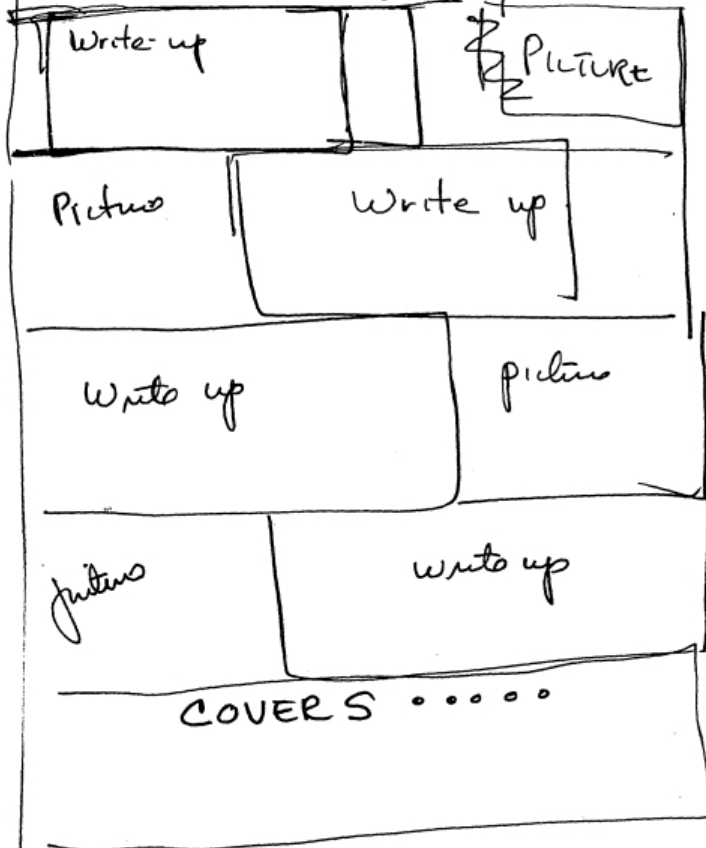 Write-up
PICTURE
Picture
Write up
Write up
picture
picture
Write up
COVERS .....